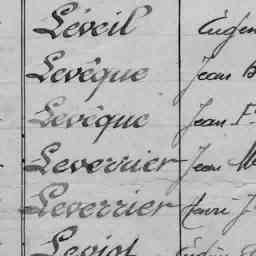 Léveil Eugen
Levêque Jean B
Levêque Jean F
Leverrier Jean M
Leverrier Henri J
Leviot